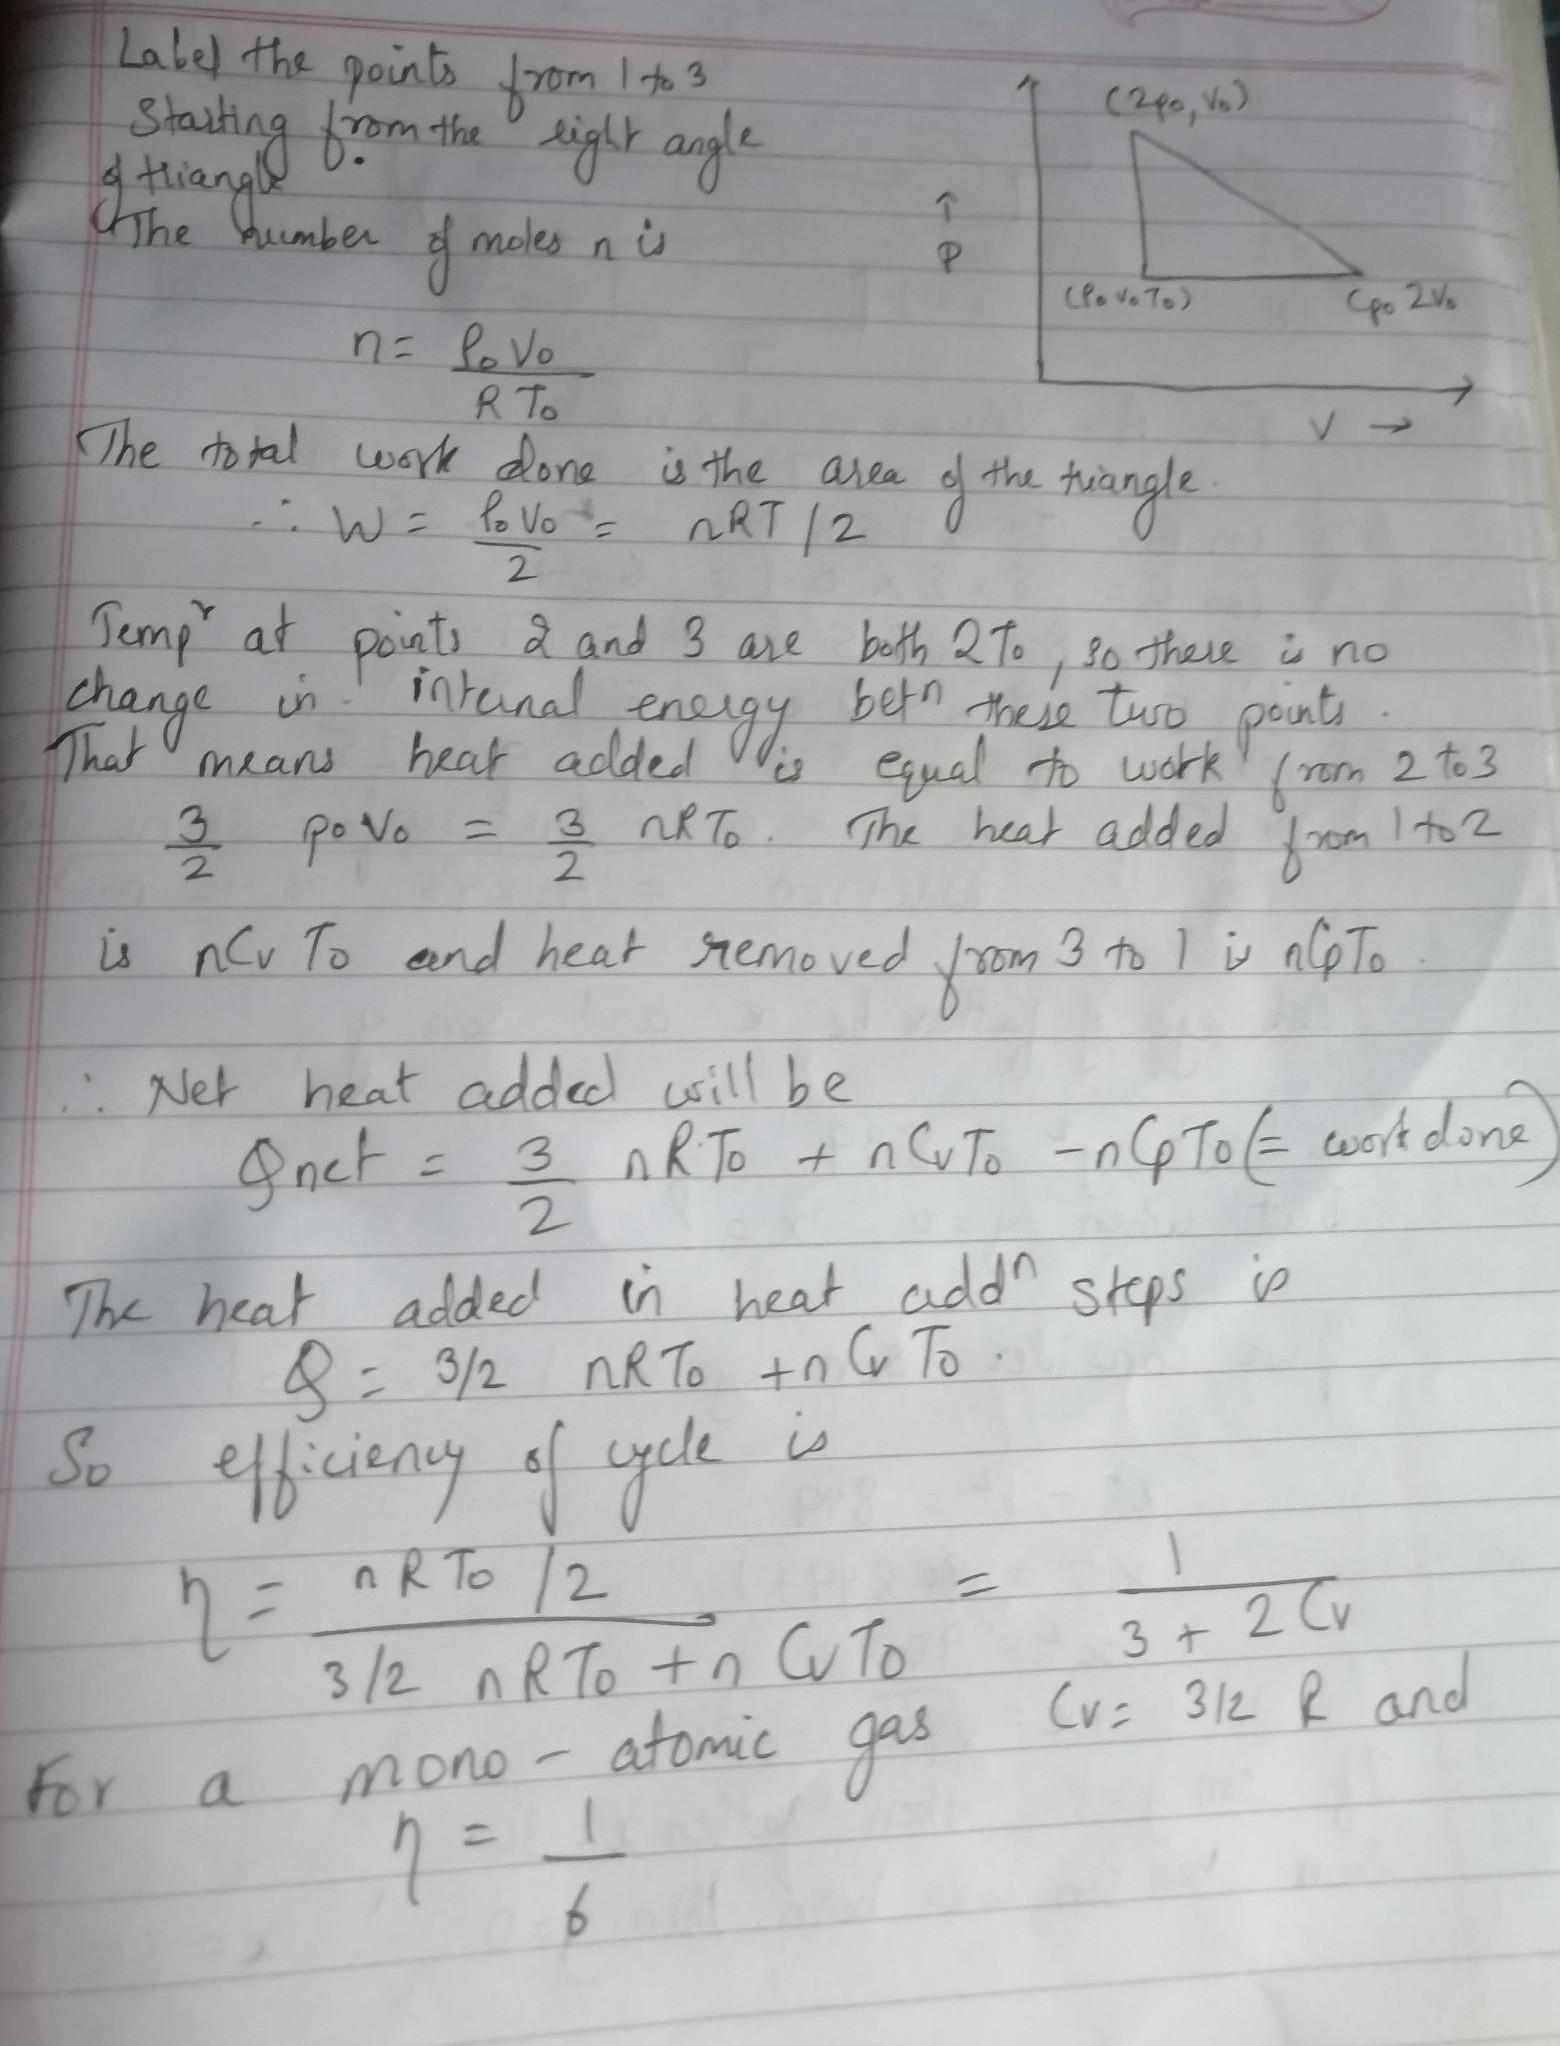 Label the points from 1 to 3
Starting from the right angle
of triangle
The number of moles n is
(2p0, V0)
↑
P
(P0 V0 T0)
(p0 2V0
V →
n = P0 V0 / R T0
The total work done is the area of the triangle.
∴ W = P0 V0 / 2 = nRT / 2
Tempr at points 2 and 3 are both 2T0, so there is no
change in internal energy betn these two points.
That means heat added is equal to work from 2 to 3
3/2 p0 V0 = 3/2 nRT0. The heat added from 1 to 2
is nCv T0 and heat removed from 3 to 1 is nCpT0.
∴ Net heat added will be
Qnet = 3/2 nRT0 + nCvT0 - nCpT0 (= work done)
The heat added in heat addn steps is
Q = 3/2 nRT0 + nCv T0.
So efficiency of cycle is
η = nRT0 /2 / 3/2 nRT0 + n CvT0 = 1 / 3 + 2Cv
For a mono-atomic gas Cv = 3/2 R and
η = 1 / 6